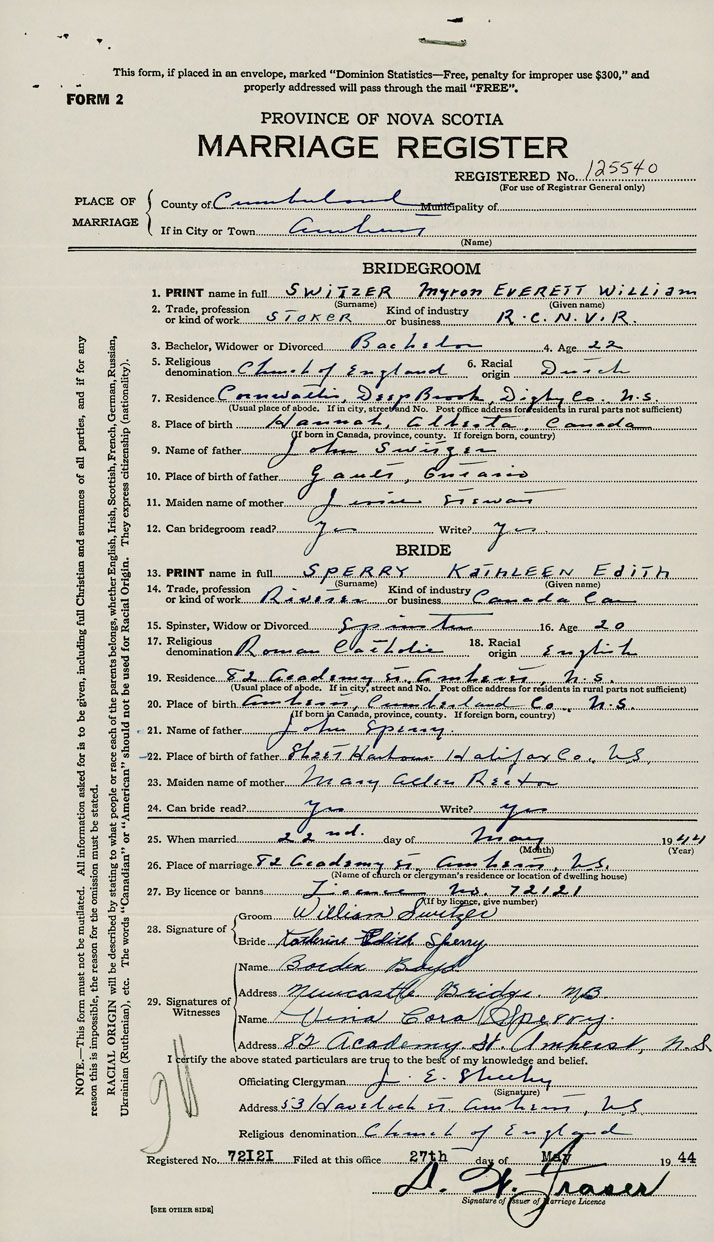 This form, if placed in an envelope, marked "Dominion Statistics—Free, penalty for improper use $300," and
properly addressed will pass through the mail "FREE".
FORM 2
PROVINCE OF NOVA SCOTIA
MARRIAGE REGISTER
REGISTERED No. 125540
(For use of Registrar General only)
PLACE OF MARRIAGE
County of Cumberland Municipality of
If in City or Town Amherst
(Name)
BRIDEGROOM
1. PRINT name in full SWITZER Myron EVERETT WILLIAM
(Surname) (Given name)
2. Trade, profession or kind of work STOKER Kind of industry or business R.C.N.V.R.
3. Bachelor, Widower or Divorced Bachelor 4. Age 22
5. Religious denomination Church of England 6. Racial origin Dutch
7. Residence Cornwallis, Deep Brook, Digby Co. N.S.
(Usual place of abode. If in city, street and No. Post office address for residents in rural parts not sufficient)
8. Place of birth Hannah, Alberta, Canada
(If born in Canada, province, county. If foreign born, country)
9. Name of father John Switzer
10. Place of birth of father Gault, Ontario
11. Maiden name of mother Jessie Stewart
12. Can bridegroom read? Yes Write? Yes
BRIDE
13. PRINT name in full SPERRY KATHLEEN EDITH
(Surname) (Given name)
14. Trade, profession or kind of work Riveter Kind of industry or business Canada Car
15. Spinster, Widow or Divorced Spinster 16. Age 20
17. Religious denomination Roman Catholic 18. Racial origin English
19. Residence 82 Academy St. Amherst, N.S.
(Usual place of abode. If in city, street and No. Post office address for residents in rural parts not sufficient)
20. Place of birth Amherst, Cumberland Co., N.S.
(If born in Canada, province, county. If foreign born, country)
21. Name of father John Sperry.
22. Place of birth of father Sheet Harbour Halifax Co., N.S.
23. Maiden name of mother Mary Allen
24. Can bride read? Yes Write? Yes
25. When married 22nd. day of May 1944
(Month) (Year)
26. Place of marriage 82 Academy St. Amherst, N.S.
(Name of church or clergyman's residence or location of dwelling house)
27. By licence or banns Licence No. 72121
(If by licence, give number)
28. Signature of
Groom William Switzer
Bride Katherine Edith Sperry
29. Signatures of Witnesses
Name Borden Boyd
Address Newcastle Bridge. N.B.
Name Vina Cora Sperry.
Address 82 Academy St. Amherst, N.S
I certify the above stated particulars are true to the best of my knowledge and belief.
Officiating Clergyman J. E.
(Signature)
Address 53 Havelock St. Amherst, N.S.
Religious denomination Church of England
Registered No. 72121 Filed at this office 27th day of May 1944
Fraser
Signature of Issuer of Marriage Licence
[SEE OTHER SIDE]
NOTE.—This form must not be mutilated. All information asked for is to be given, including full Christian and surnames of all parties, and if for any
reason this is impossible, the reason for the omission must be stated.
RACIAL ORIGIN will be described by stating to what people or race each of the parents belongs, whether English, Irish, Scottish, French, German, Russian,
Ukrainian (Ruthenian), etc. The words "Canadian" or "American" should not be used for Racial Origin. They express citizenship (nationality).